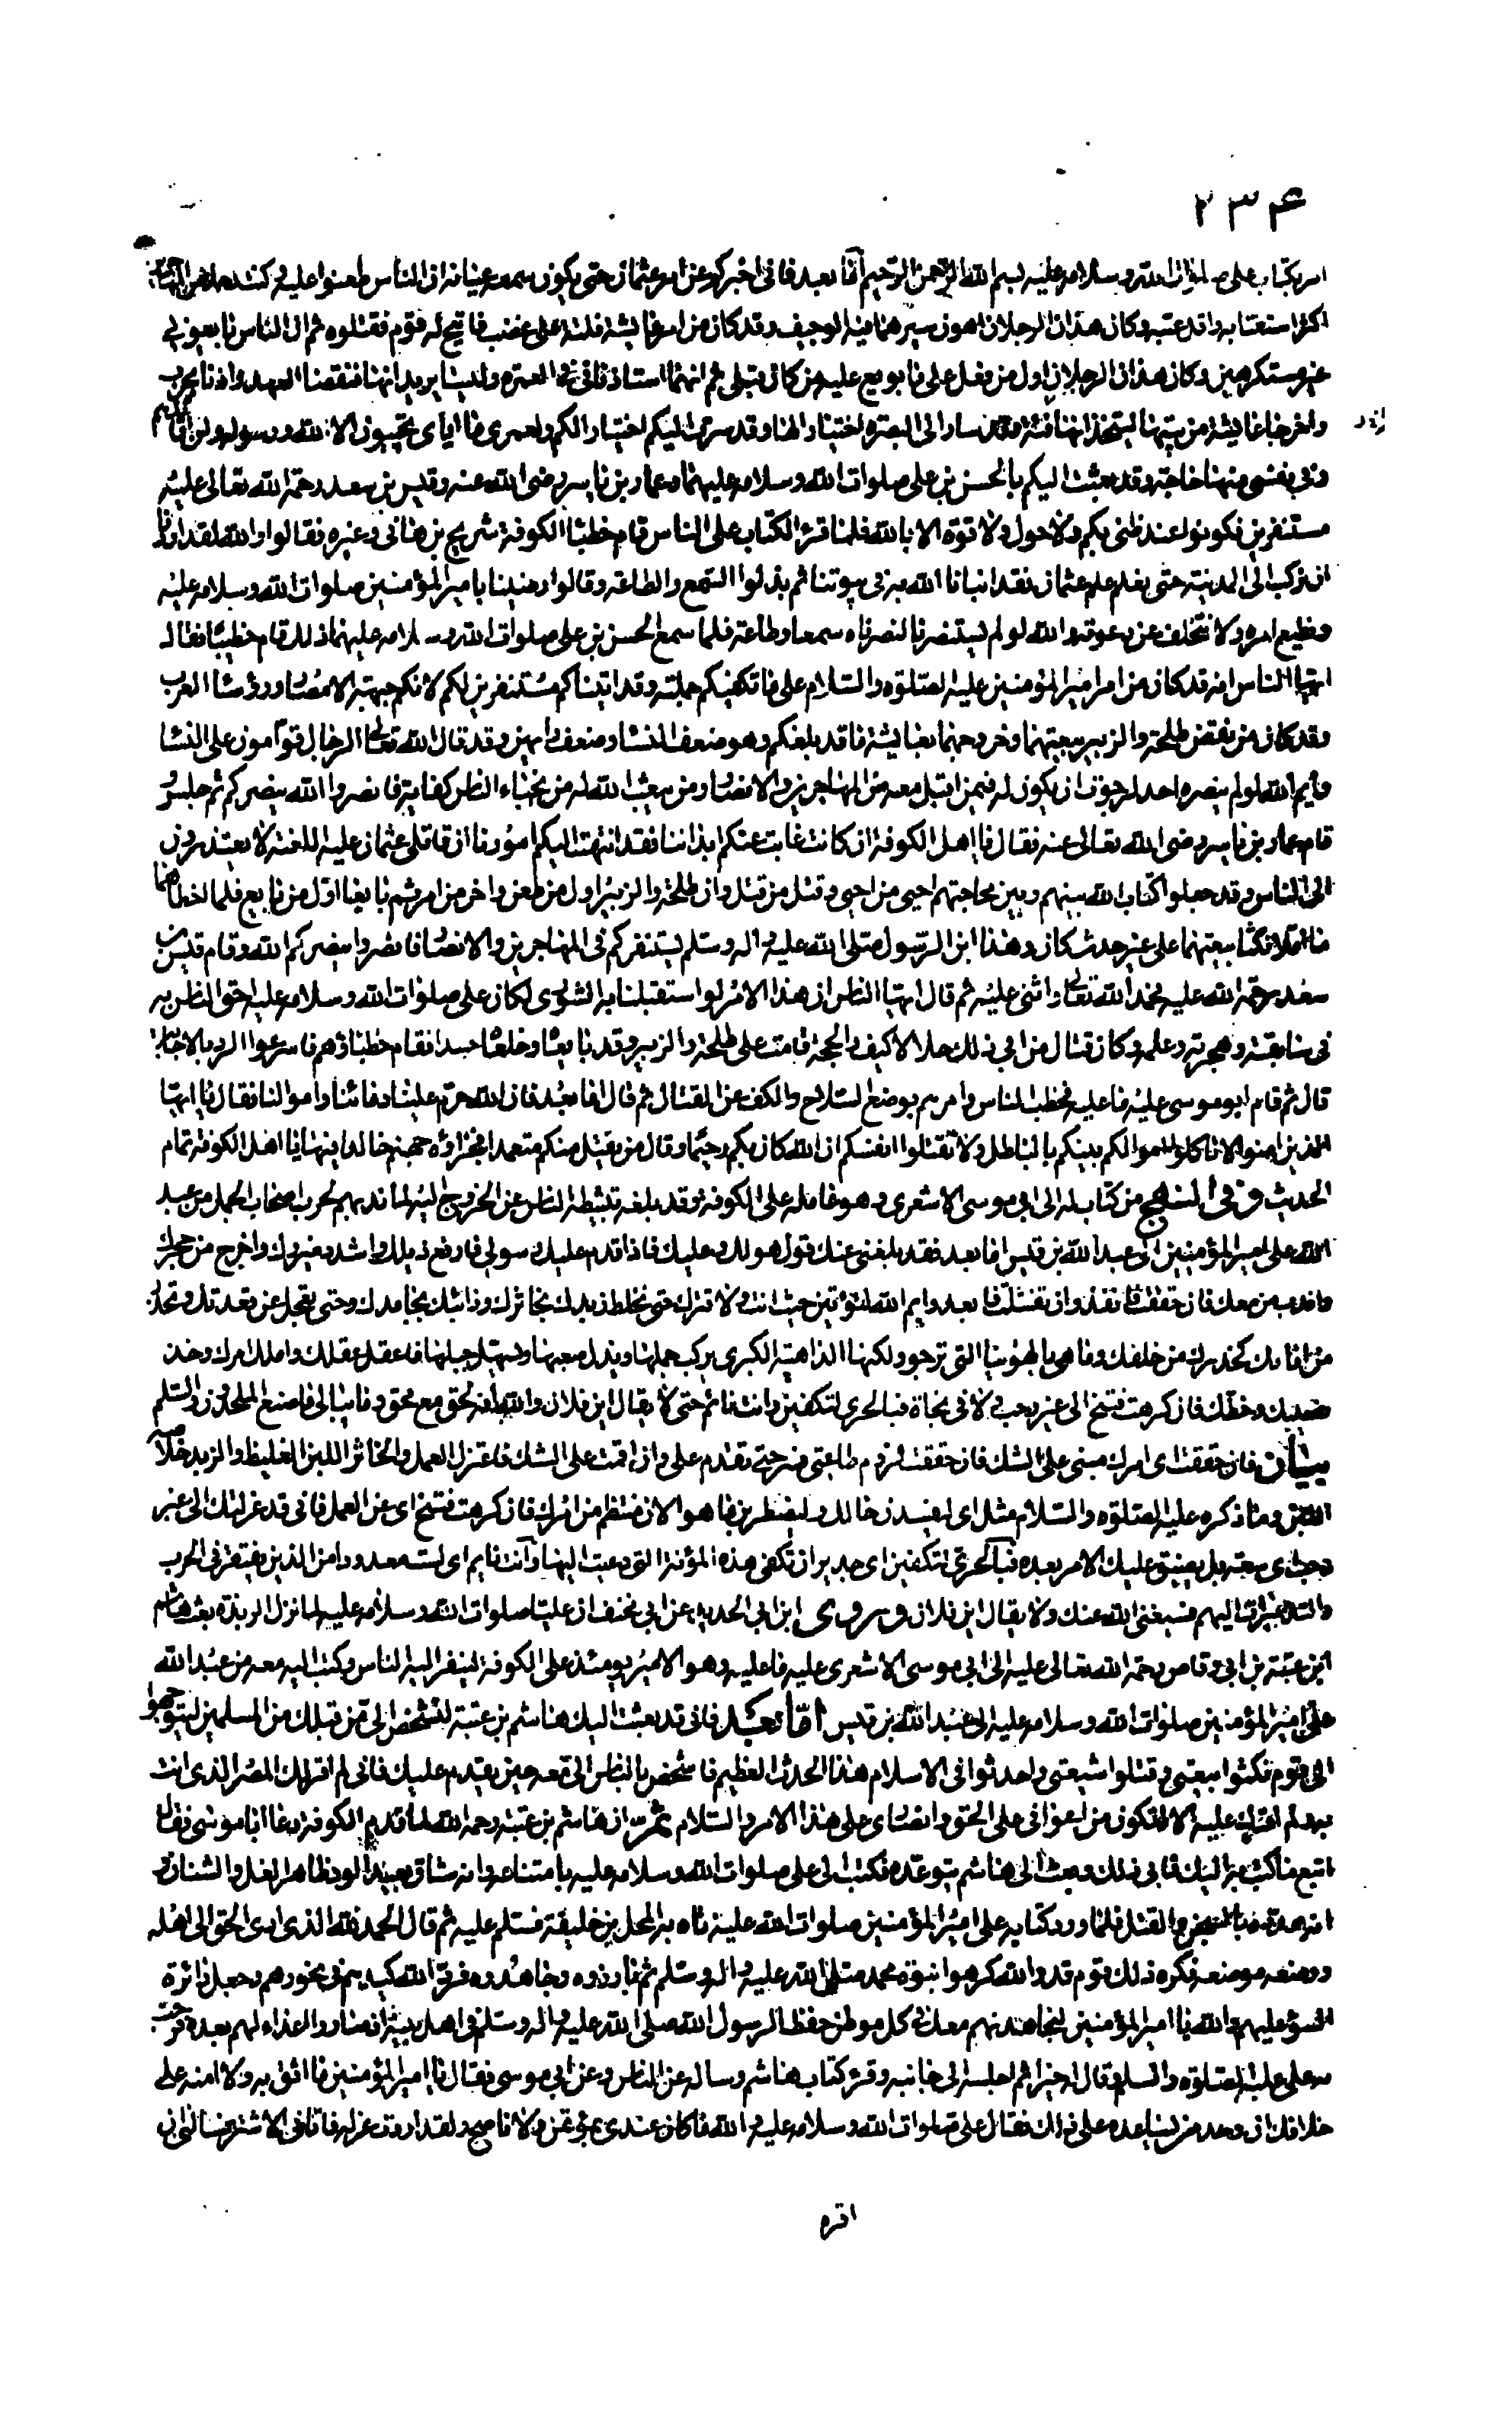 ۲۳۴
امر بكتاب على صلوات الله وسلامه عليه بسم الله الرحمن الرحيم اما بعد فانى اخبركم عن امر عثمان حتى يكون سمعه عيانه ان الناس طعنوا عليه وكنت رجلا من المهاجرين
اكثر استعتابه واقل عتبه وكان هذان الرجلان اهون سيرهما فيه الوجيف وقد كان من امر عايشة فلتة على غضب فاتيح له قوم فقتلوه ثم ان الناس بايعونى
غير مستكرهين وكان هذان الرجلان اول من فعل على ما بويع عليه من كان قبلى ثم انهما استاذنانى فى العمرة وليسا يريدانها فنقضا العهد واذنا بحرب
واخرجا عايشة من بيتها ليتخذانها فئة وقد سارا الى البصرة اختيارا لها وقد سرت اليكم اختيارا لكم ولعمرى ما اياى تجيبون الا الله ورسوله ولن اقاتلهم
وفى نفسى منهما حاجة وقد بعثت اليكم بالحسن بن على صلوات الله وسلامه عليهما وعمار بن ياسر رضى الله عنه وقيس بن سعد رحمة الله تعالى عليه
مستنفرين فكونوا عند ظنى بكم ولا حول ولا قوة الا بالله فلما قرئ الكتاب على الناس قام خطباء الكوفة شريح بن هانى وغيره فقالوا والله لقد اردنا
ان نركب الى المدينة حتى نعلم علم عثمان فقد انبانا الله به فى بيوتنا ثم بذلوا السمع والطاعة وقالوا رضينا بامير المؤمنين صلوات الله وسلامه عليه
ونطيع امره ولا نتخلف عن دعوته والله لو لم يستنصرنا لنصرناه سمعا وطاعة فلما سمع الحسن بن على صلوات الله وسلامه عليهما ذلك قام خطيبا فقال
ايها الناس انه قد كان من امر امير المؤمنين عليه الصلوة والسلام على ما تكفيكم جملته وقد اتيناكم مستنفرين لكم لانكم جبهة الامصار ورؤساء العرب
وقد كان من نقض طلحة والزبير بيعتهما وخروجهما بعايشة ما قد بلغكم وهو ضعف النساء وضعف رايهن وقد قال الله تعالى الرجال قوامون على النساء
وايم الله لو لم ينصره احد لرجوت ان يكون له فيمن اقبل معه من المهاجرين والانصار ومن يبعث الله له من نجباء الناس كفاية فانصروا الله ينصركم ثم جلس و
قام عمار بن ياسر رضى الله تعالى عنه فقال يا اهل الكوفة ان كانت غابت عنكم ابداننا فقد انتهت اليكم امورنا ان قاتلى عثمان عليه اللعنة لا يعتذرون
الى الناس وقد جعلوا كتاب الله بينهم وبين محاجتهم احيى من احيى وقتل من قتل وان طلحة والزبير اول من طعن واخر من امر ثم بايعا اول من بايع فلما اخطاهما
ما املا نكثا بيعتهما على غير حدث كان وهذا ابن الرسول صلى الله عليه واله وسلم يستنفركم فى المهاجرين والانصار فانصروا ينصركم الله وقام قيس بن
سعد رحمة الله عليه فحمد الله تعالى واثنى عليه ثم قال ايها الناس ان هذا الامر لو استقبلنا به الشورى لكان على صلوات الله وسلامه عليه احق الناس به
فى سابقته وهجرته وعلمه وكان قتال من ابى ذلك حلالا كيف والحجة قامت على طلحة والزبير وقد بايعاه وخلعاه حسدا فقام خطباؤهم فاسرعوا الرد بالاجابة
قال ثم قام ابو موسى عليه ما عليه فخطب الناس وامرهم بوضع السلاح والكف عن القتال ثم قال اما بعد فان الله حرم علينا دمائنا واموالنا فقال يا ايها
الذين امنوا لا تاكلوا اموالكم بينكم بالباطل ولا تقتلوا انفسكم ان الله كان بكم رحيما وقال من يقتل منكم متعمدا فجزاؤه جهنم خالدا فيها يا اهل الكوفة تمام
الحديث وفى المنهج من كتاب له الى ابى موسى الاشعرى وهو عامله على الكوفة وقد بلغه تثبيطه الناس عن الخروج اليه لما ندبهم لحرب اصحاب الجمل من عبد
الله على امير المؤمنين الى عبد الله بن قيس اما بعد فقد بلغنى عنك قول هو لك وعليك فاذا قدم عليك رسولى فارفع ذيلك واشدد مئزرك واخرج من جحرك
واندب من معك فان حققت فانفذ وان تفشلت فابعد وايم الله لتؤتين حيث انت ولا تترك حتى يخلط زبدك بخاثرك وذائبك بجامدك وحتى تعجل عن قعدتك وتحذر
من امامك كحذرك من خلفك وما هى بالهوينا التى ترجو ولكنها الداهية الكبرى يركب جملها ويذل صعبها ويسهل جبلها فاعقل عقلك واملك امرك وخذ
نصيبك وحظك فان كرهت فتنح الى غير رحب ولا فى نجاة فبالحرى لتكفين وانت نائم حتى لا يقال اين فلان والله انه لحق مع محق وما يبالى ما صنع الملحدون والسلم
بيان فان حققت اى امرك مبنى على الشك فان حققت لزوم طاعتى فرحتى تقدم على وان اقمت على الشك فاعتزل العمل والخاثر اللبن الغليظ والزبد خلاصة
اللبن وما ذكره عليه الصلوة والسلام مثل اى ليفسدن حالك وليضطربن ما هو الان منتظم من امرك فان كرهت فتنح اى عن العمل فانى قد عزلتك الى غير
رحب اى سعة بل يضيق عليك الامر بعده فبالحرى لتكفين اى جدير ان تكفى هذه المؤنة التى دعيت اليها وانت نايم اى لست معدودا من الذين يفتقر فى الحرب
والتدبيرات اليهم فسيغنى الله عنك ولا يقال اين فلان وروى ابن ابى الحديد عن ابى مخنف ان عليا صلوات الله وسلامه عليه لما نزل الربذة بعث هاشم
ابن عتبة بن ابى وقاص رحمة الله تعالى عليه الى ابى موسى الاشعرى عليه ما عليه وهو الامير يومئذ على الكوفة لينفر اليه الناس وكتب اليه معه من عبد الله
على امير المؤمنين صلوات الله وسلامه عليه الى عبد الله بن قيس اما بعد فانى قد بعثت اليك هاشم بن عتبة لتشخص الى من قبلك من المسلمين ليتوجهوا
الى قوم نكثوا بيعتى وقتلوا شيعتى واحدثوا فى الاسلام هذا الحدث العظيم فاشخص بالناس الى معه حين يقدم عليك فانى لم اقرك المصر الذى انت
به ولم اقرك عليه الا لتكون من اعوانى على الحق وانصارى على هذا الامر والسلام ثم ان هاشم بن عتبة رحمه الله لما قدم الكوفة دعا ابا موسى فقال
اتبع ما كتب به اليك فابى ذلك وبعث الى هاشم يتوعده فكتب الى على صلوات الله وسلامه عليه بامتناعه وانه شاق بعيد الود ظاهر الغل والشنان و
انه هدده بالسجن والقتل فلما ورد كتابه على امير المؤمنين صلوات الله عليه اتاه به المحل بن خليفة فسلم عليه ثم قال الحمد لله الذى ادى الحق الى اهله
ووضعه موضعه فكره ذلك قوم قد والله كرهوا نبوة محمد صلى الله عليه واله وسلم ثم بارزوه وجاهدوه فرد الله كيدهم فى نحورهم وجعل دائرة
السوء عليهم والله يا امير المؤمنين لنجاهدنهم معك فى كل موطن حفظا لرسول الله صلى الله عليه واله وسلم فى اهل بيته اذ صاروا اعداء لهم بعده فرحب
به على عليه الصلوة والسلم وقال خيرا ثم اجلسه الى جانبه وقرء كتاب هاشم وساله عن الناس وعن ابى موسى فقال يا امير المؤمنين ما اثق به ولا امنه على
خلافك ان وجد من يساعده على ذلك فقال على صلوات الله وسلامه عليه والله ما كان عندى بمؤتمن ولا ناصح ولقد اردت عزله فاتانى الاشتر فسالنى ان
اقره